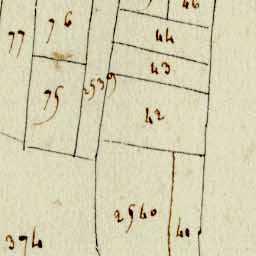 46
76
77
44
43
75
2539
42
2540
41
374